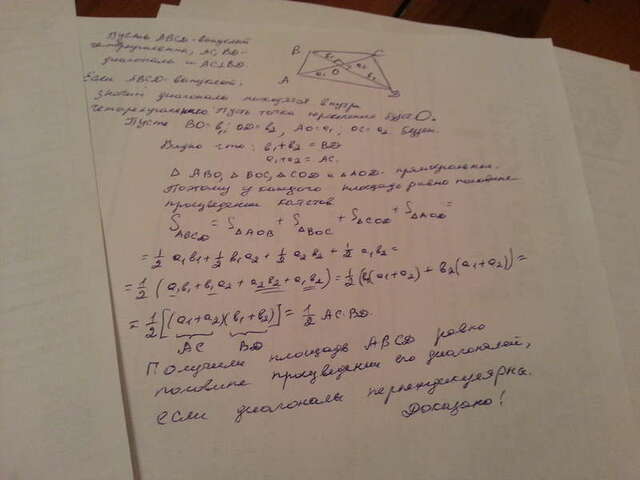 Пусть ABCD - выпуклый
четырехугольник, AC, BD -
диагонали и AC⊥BD.
B C
A O D
b₁ a₂
a₁ b₂
Если ABCD - выпуклый,
значит диагонали находятся внутри
четырехугольника. Пусть точка пересечения будет O.
Пусть BO = b₁; OD = b₂, AO = a₁; OC = a₂ будем.
Видно что: b₁ + b₂ = BD
a₁ + a₂ = AC.
△ ABO, △ BOC, △ COD и △ AOD - прямоугольные.
Поэтому у каждого площадь равно половине
произведении катетов
S ABCD = S △AOB + S △BOC + S △COD + S △AOD =
= 1/2 a₁b₁ + 1/2 b₁a₂ + 1/2 a₂b₂ + 1/2 a₁b₂ =
= 1/2 (a₁b₁ + b₁a₂ + a₂b₂ + a₁b₂) = 1/2 (b₁(a₁+a₂) + b₂(a₁+a₂)) =
= 1/2 [(a₁+a₂)(b₁+b₂)] = 1/2 AC·BD.
AC BD
Получили площадь ABCD равно
половине произведении его диагоналей,
если диагонали перпендикулярны.
Доказано!